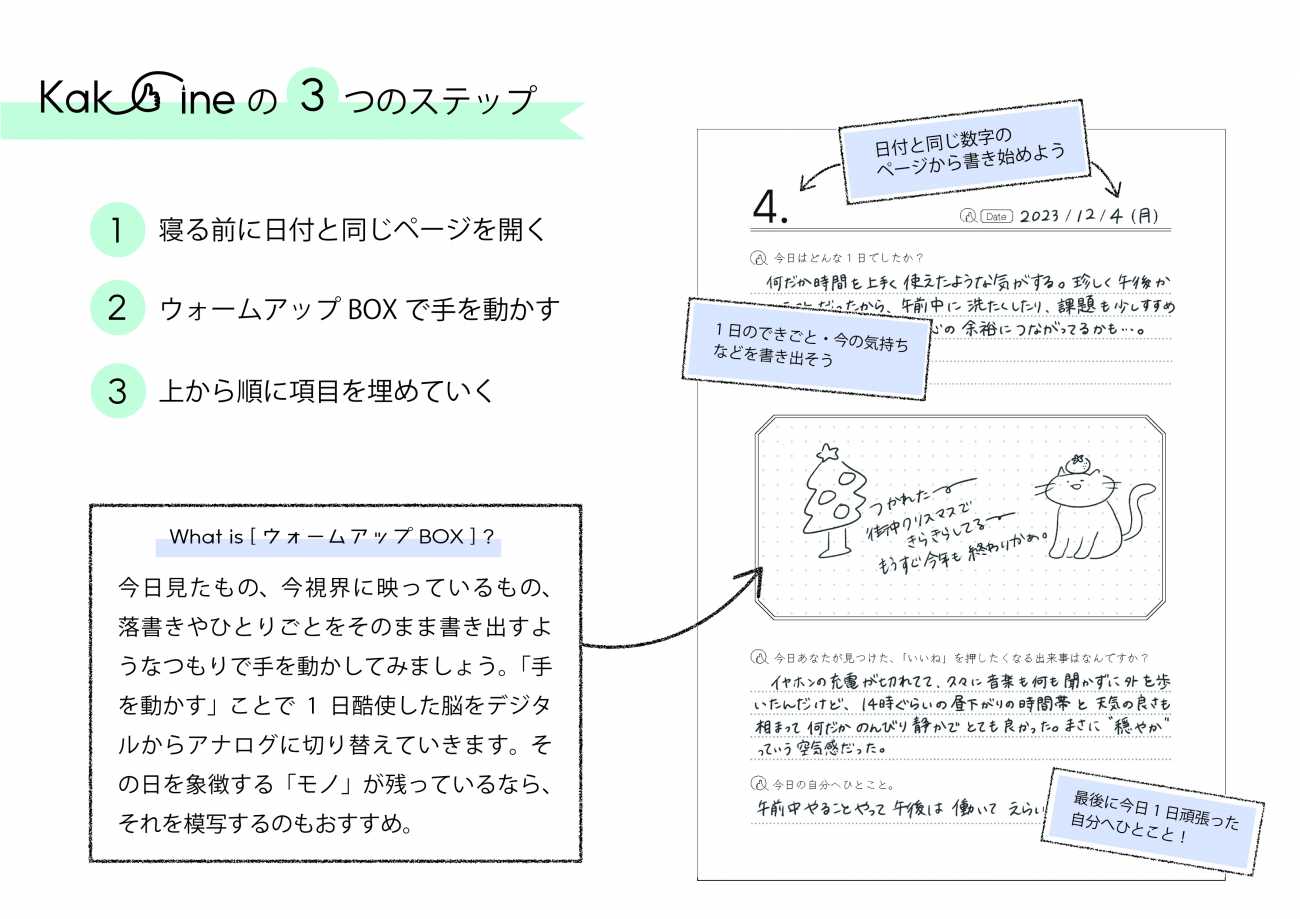 Kak ineの3つのステップ
1 寝る前に日付と同じページを開く
2 ウォームアップBOXで手を動かす
3 上から順に項目を埋めていく
What is [ ウォームアップBOX ] ?
今日見たもの、今視界に映っているもの、
落書きやひとりごとをそのまま書き出すよ
うなつもりで手を動かしてみましょう。「手
を動かす」ことで1日酷使した脳をデジタ
ルからアナログに切り替えていきます。そ
の日を象徴する「モノ」が残っているなら、
それを模写するのもおすすめ。
日付と同じ数字の
ページから書き始めよう
4.
Date 2023/12/4(月)
今日はどんな1日でしたか?
何だか時間を上手く使えたような気がする。珍しく午後か
だったから、午前中に洗たくしたり、課題も少しすすめ
心の余裕につながってるかも…。
1日のできごと・今の気持ち
などを書き出そう
つかれたー
街中クリスマスで
きらきらしてるー
もうすぐ今年も終わりかぁ。
今日あなたが見つけた、「いいね」を押したくなる出来事はなんですか?
イヤホンの充電が切れてて、久々に音楽も何も聞かずに外を歩
いたんだけど、14時ぐらいの昼下がりの時間帯と天気の良さも
相まって何だかのんびり静かでとても良かった。まさに"穏やか"
っていう空気感だった。
今日の自分へひとこと。
午前中やることやって午後は働いてえらい
最後に今日1日頑張った
自分へひとこと!